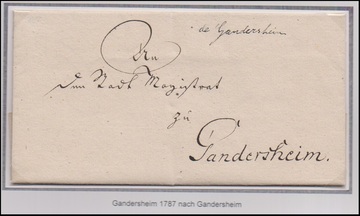 de Gandersheim
An
den Stadt Magistrat
zu
Gandersheim.
Gandersheim 1787 nach Gandersheim